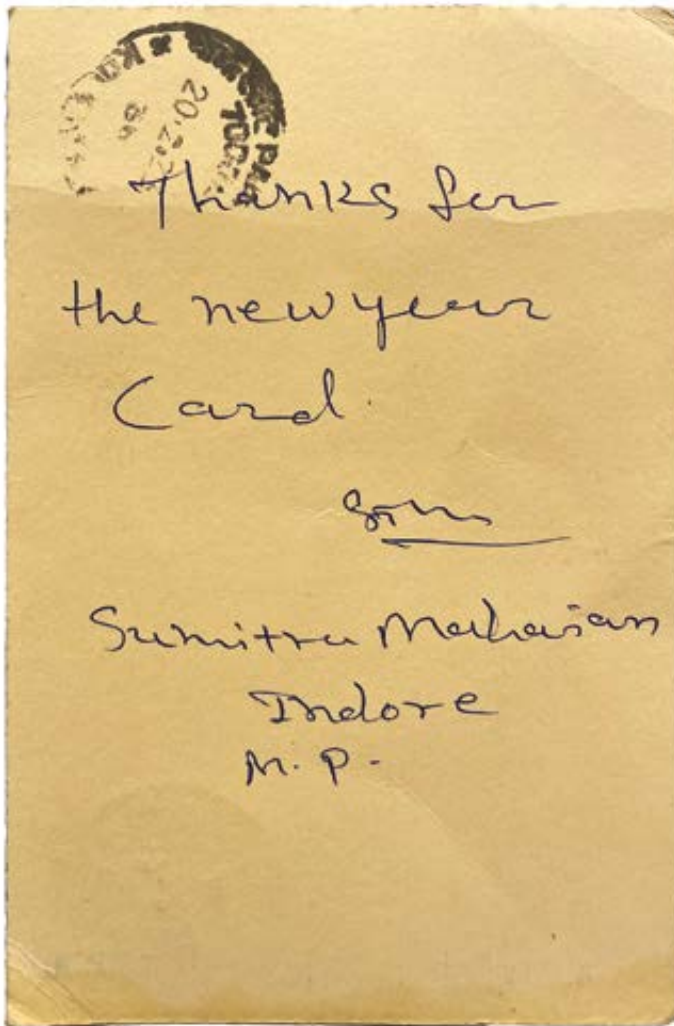 Thanks for
the new year
Card.
Sumitra Mahajan
Indore
M. P.